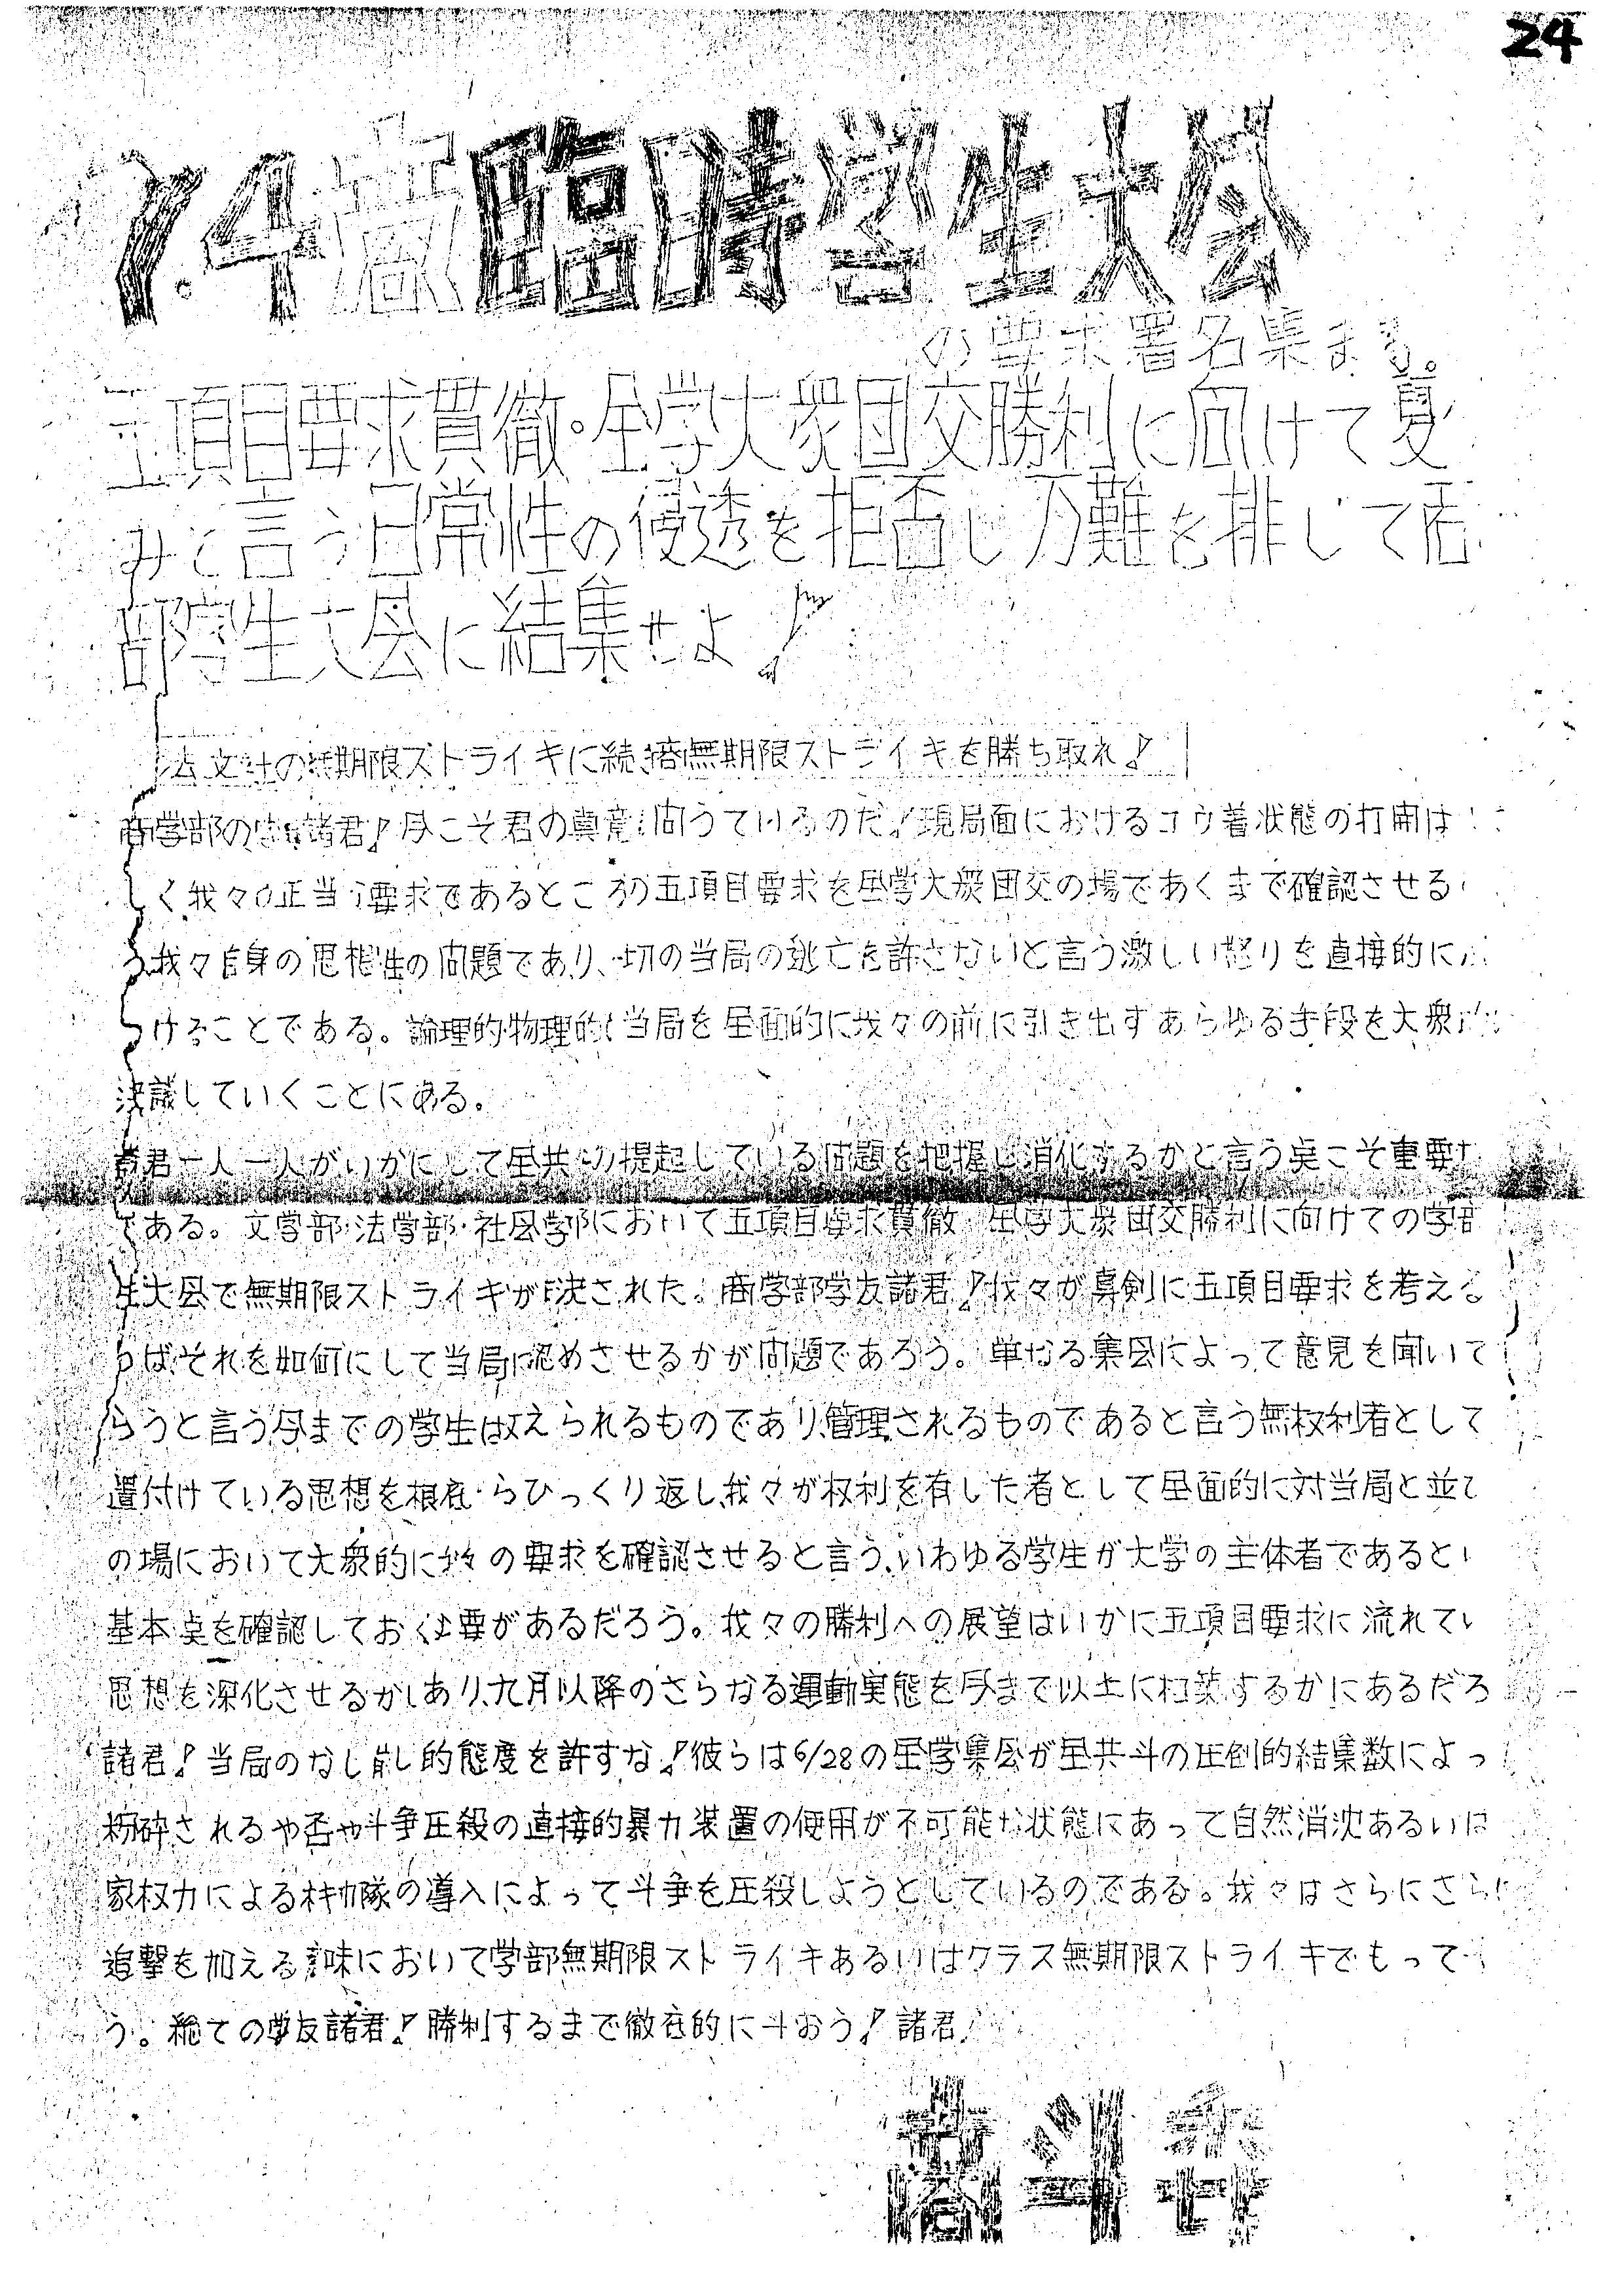 24
7.4 商臨時学生大会
の要求署名集まる。
五項目要求貫徹・全学大衆団交勝利に向けて夏
みと言う日常性の侵透を拒否し万難を排して
部学生大会に結集せよ!
法文社の無期限ストライキに続き商無期限ストライキを勝ち取れ!
商学部の学友諸君!今こそ君の真意を問うているのだ!現局面におけるコウ着状態の打開は
しく我々の正当な要求であるところの五項目要求を全学大衆団交の場であくまで確認させる
う我々自身の思想性の問題であり、一切の当局の逃亡を許さないと言う激しい怒りを直接的に
つけることである。論理的物理的に当局を全面的に我々の前に引き出すあらゆる手段を大衆的
決議していくことにある。
諸君一人一人がいかにして全共斗の提起している問題を把握し消化するかと言う点こそ重要な
である。文学部・法学部・社会学部において五項目要求貫徹 全学大衆団交勝利に向けての学部
生大会で無期限ストライキが可決された。商学部学友諸君!我々が真剣に五項目要求を考える
らばそれを如何にして当局に認めさせるかが問題であろう。単なる集会によって意見を聞いて
らうと言う今までの学生は教えられるものであり、管理されるものであると言う無权利者として
置付けている思想を根底からひっくり返し、我々が权利を有した者として全面的に対当局と並び
の場において大衆的に我々の要求を確認させると言う、いわゆる学生が大学の主体者であるとい
基本点を確認しておく必要があるだろう。我々の勝利への展望はいかに五項目要求に流れてい
思想を深化させるかにあり、九月以降のさらなる運動実態を今まで以上に構築するかにあるだろ
諸君!当局のなし崩し的態度を許すな!彼らは6/28の全学集会が全共斗の圧倒的結集数によっ
粉砕されるや否や斗争圧殺の直接的暴力装置の使用が不可能な状態にあって自然消沈あるいは
家权力による機動隊の導入によって斗争を圧殺しようとしているのである。我々はさらにさらに
追撃を加える意味において学部無期限ストライキあるいはクラス無期限ストライキでもって
う。総ての学友諸君!勝利するまで徹底的に斗おう!諸君!
商斗委